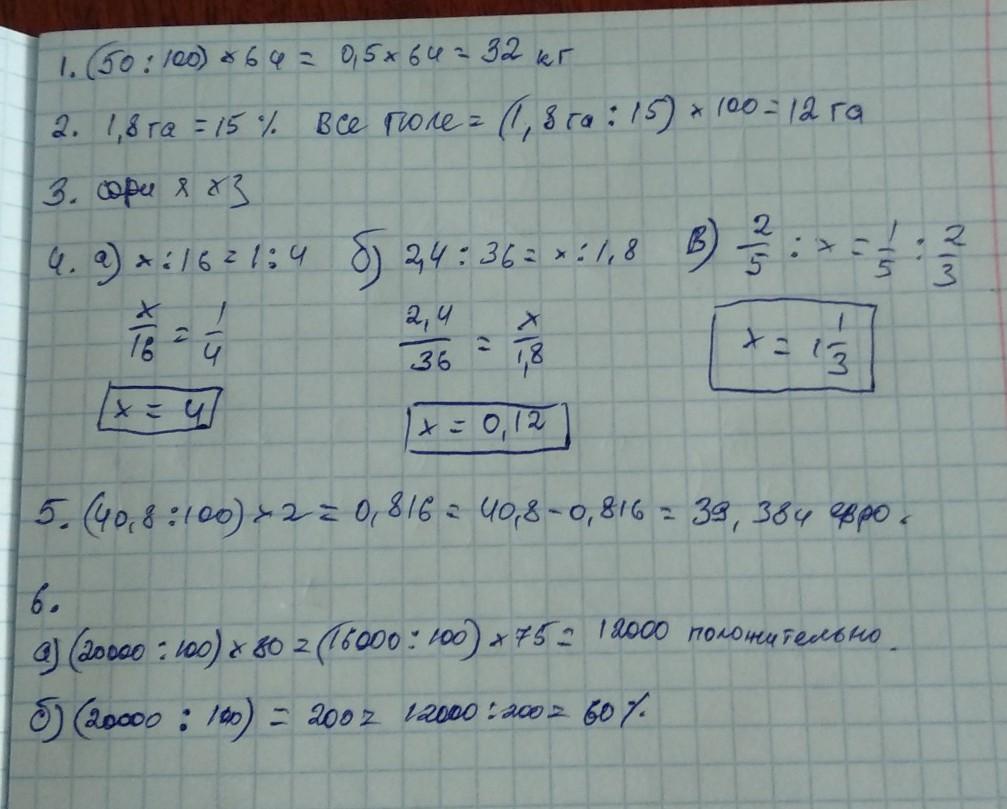 1. (50 : 100) × 64 = 0,5 × 64 = 32 кг
2. 1,8 га = 15 % все поле = (1,8 га : 15) × 100 = 12 га
3. сори я хз
4. а) x : 16 = 1 : 4 б) 2,4 : 36 = x : 1,8 в) 2/5 : x = 1/5 : 2/3
x/16 = 1/4 2,4/36 = x/1,8 x = 1 1/3
x = 4 x = 0,12
5. (40,8 : 100) × 2 = 0,816 = 40,8 - 0,816 = 39,384 евро.
6.
а) (20000 : 100) × 80 = (16000 : 100) × 75 = 12000 положительно.
б) (20000 : 100) = 200 = 12000 : 200 = 60 %.